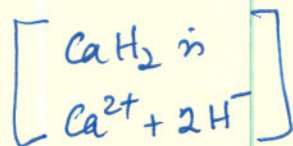 CaH₂ is
Ca²⁺ + 2H⁻